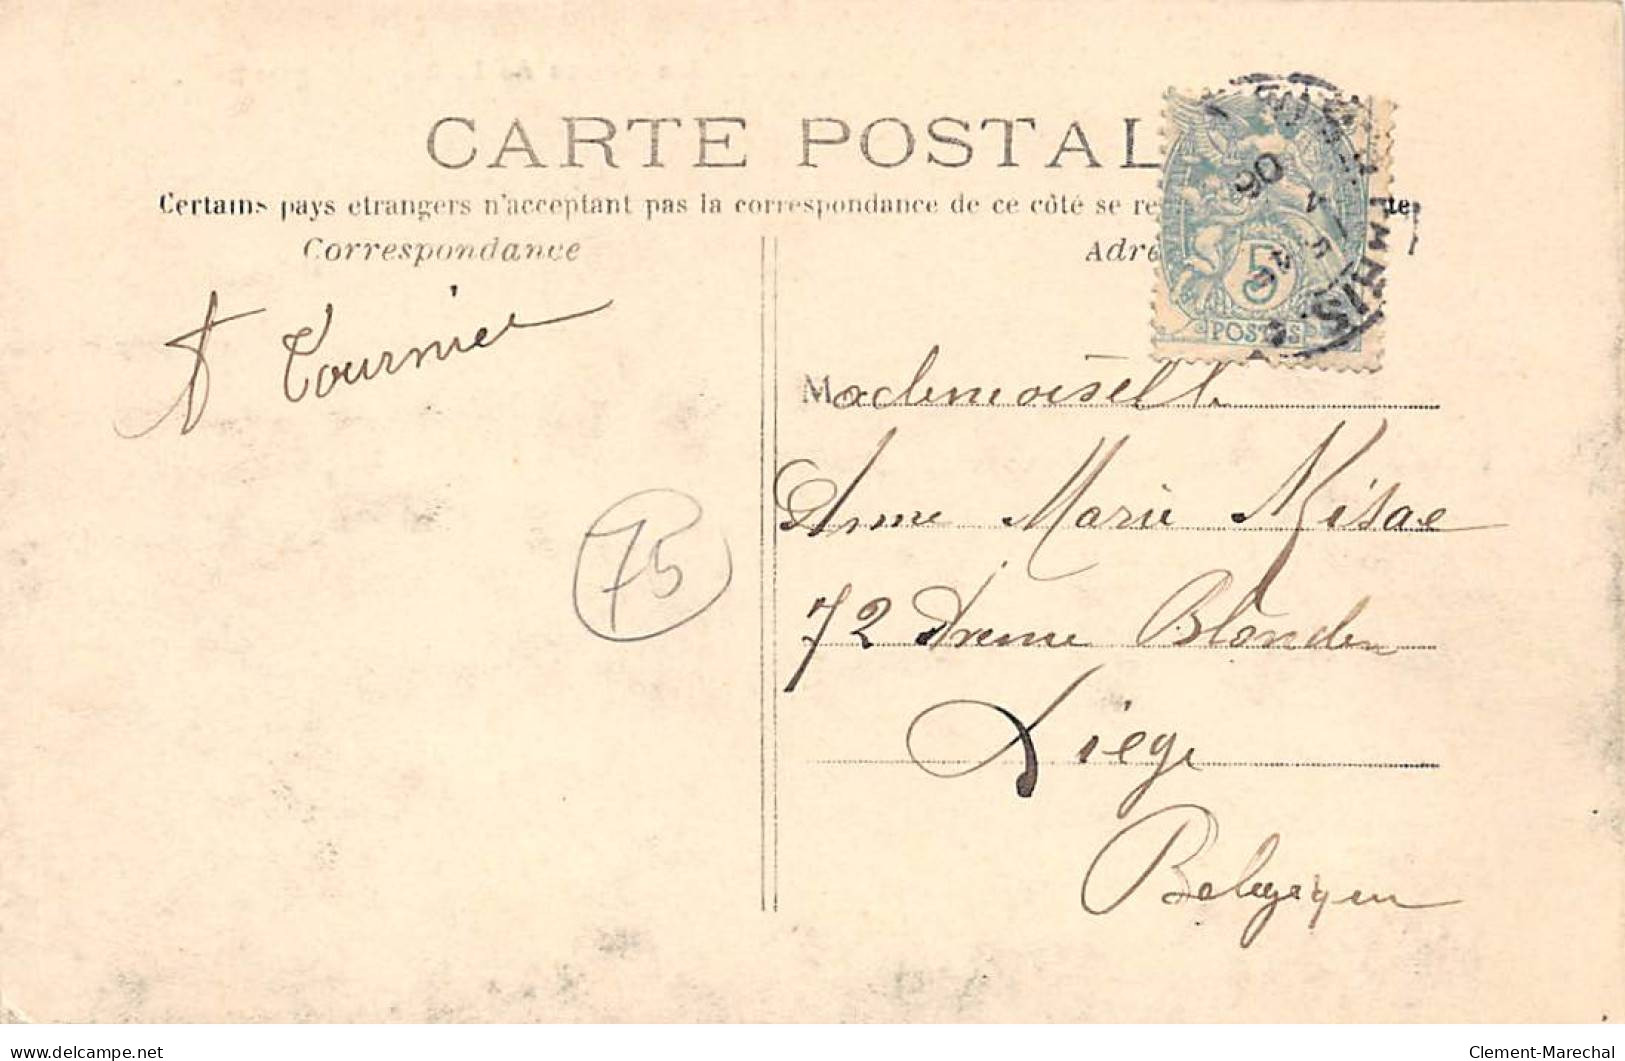 CARTE POSTAL
Certains pays etrangers n'acceptant pas la correspondance de ce côté se re te
Correspondance
Adre
5
POSTES
06
Tournier
Mademoiselle
Anne Marie Kisae
72 Avenue Blonden
Liége
Belgique
75
delcampe.net
Clement-Marechal